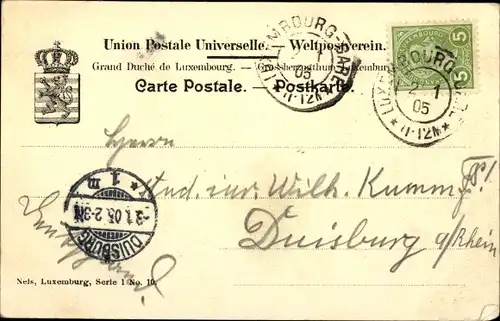 Union Postale Universelle. — Weltpostverein.
Grand Duché de Luxembourg. — Grossherzogthum Luxemburg
Carte Postale. — Postkarte.
LUXEMBOURG-GARE
05
11-12M
5 5
LUXEMBOURG-GARE
2 1
05
11-12M
Herrn
Stud. iur. Wilh. Kumm
Duisburg a/Rhein
DUISBURG
* 1 m
3.1.05. 2-3N
Deutschland
Nels, Luxemburg, Serie 1 No. 10